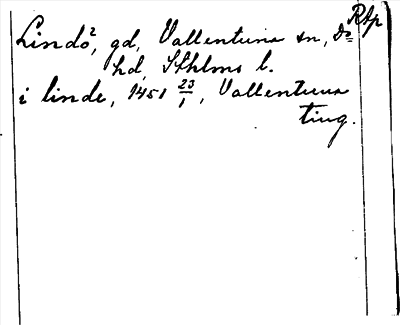 Rtp
Lindö², gd, Vallentuna sn, Do=
hd, Sthlms l.
i linde, 1451 23/1, Vallentuna
ting.